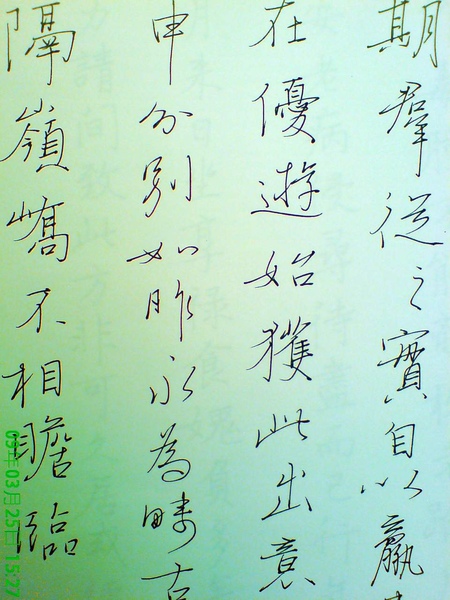 期羣從之寶自以羸
在優遊始獲此出意
申分別如昨永為疇古
隔嶺嶠不相瞻臨
09年03月25日 15:27